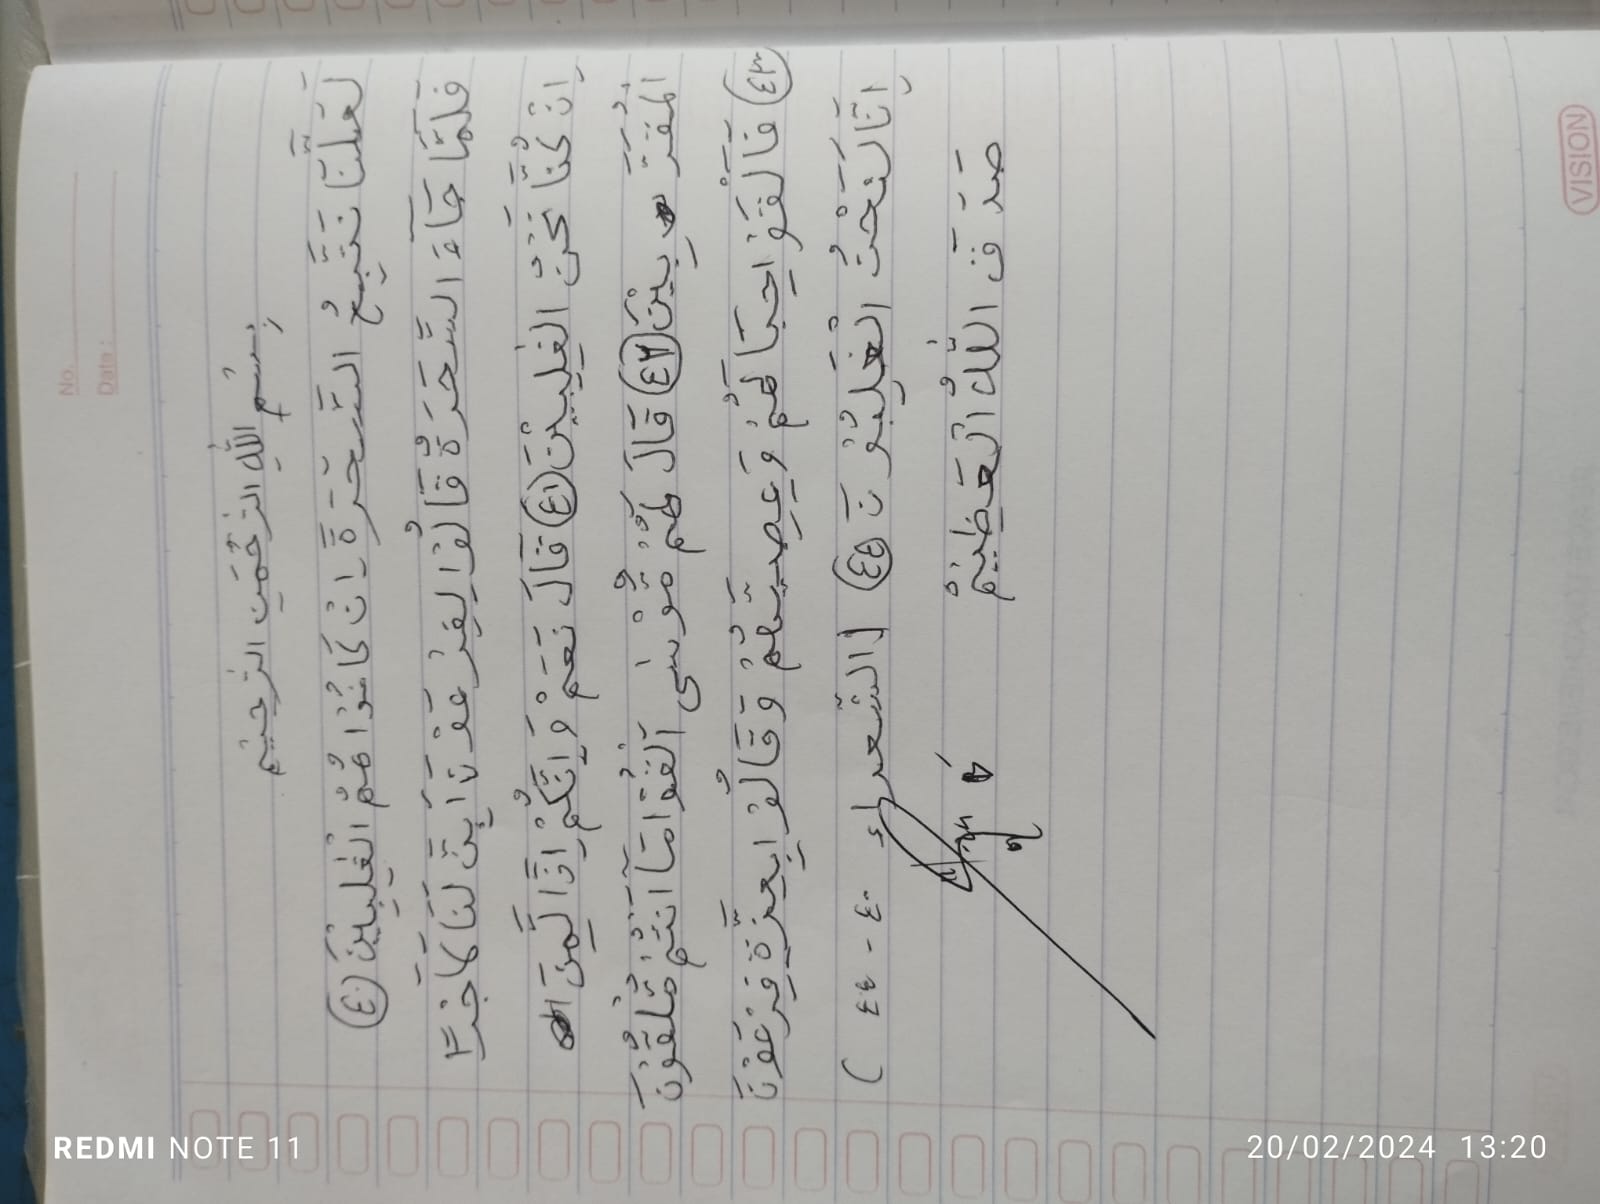 No.
Date :
بِسْمِ اللّٰهِ الرَّحْمَنِ الرَّحِيْمِ
لَعَلَّنَا نَتَّبِعُ السَّحَرَةَ اِنْ كَانُوْا هُمُ الْغٰلِبِيْنَ (٤٠)
فَلَمَّا جَآءَ السَّحَرَةُ قَالُوْا لِفِرْعَوْنَ اَىِٕنَّ لَنَا لَاَجْرًا
اِنْ كُنَّا نَحْنُ الْغٰلِبِيْنَ (٤١) قَالَ نَعَمْ وَاِنَّكُمْ اِذًا لَّمِنَ
الْمُقَرَّبِيْنَ (٤٢) قَالَ لَهُمْ مُّوْسٰى اَلْقُوْا مَآ اَنْتُمْ مُّلْقُوْنَ
(٤٣) فَاَلْقَوْا حِبَالَهُمْ وَعِصِيَّهُمْ وَقَالُوْا بِعِزَّةِ فِرْعَوْنَ
اِنَّا لَنَحْنُ الْغٰلِبُوْنَ (٤٤) (الشّعراء ٤٠ - ٤٤)
صَدَقَ اللّٰهُ الْعَظِيْمُ
VISION
REDMI NOTE 11
20/02/2024 13:20